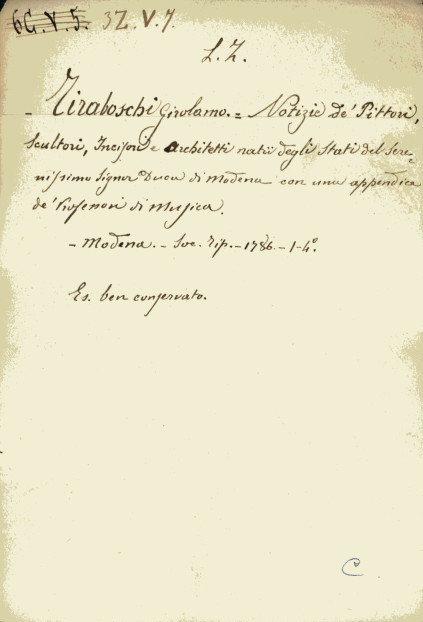 6G.V.5. 3Z.V.7.
L.Z.
- Tiraboschi Girolamo. = Notizie de' Pittori,
Scultori, Incisori e architetti natii degli Stati del Sere=
nissimo Signor Duca di Modena con una appendice
de' Professori di Musica.
- Modena. - Soc. Tip. - 1786. - 1-4°.
Es. ben conservato.
C